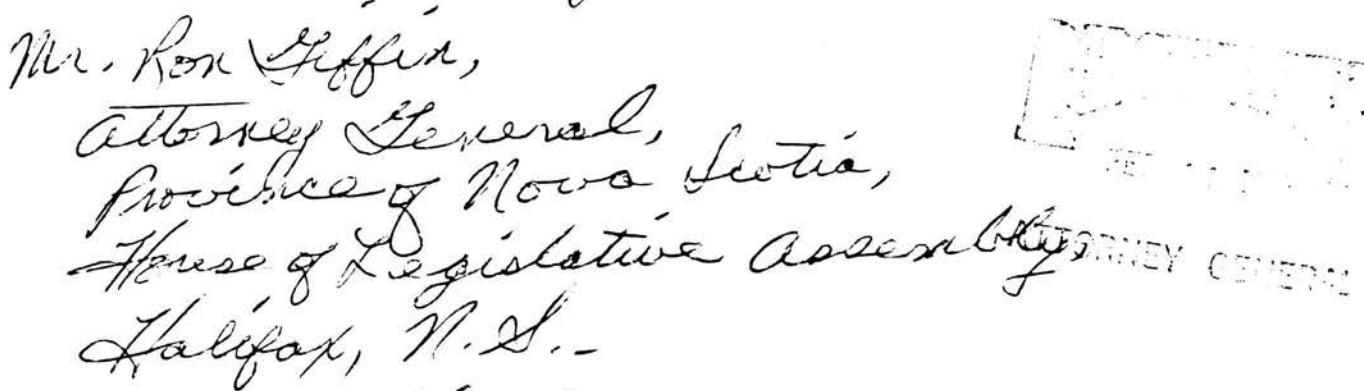 Mr. Ron Giffin,
Attorney General,
Province of Nova Scotia,
House of Legislative Assembly,
Halifax, N.S.-
ATTORNEY GENERAL